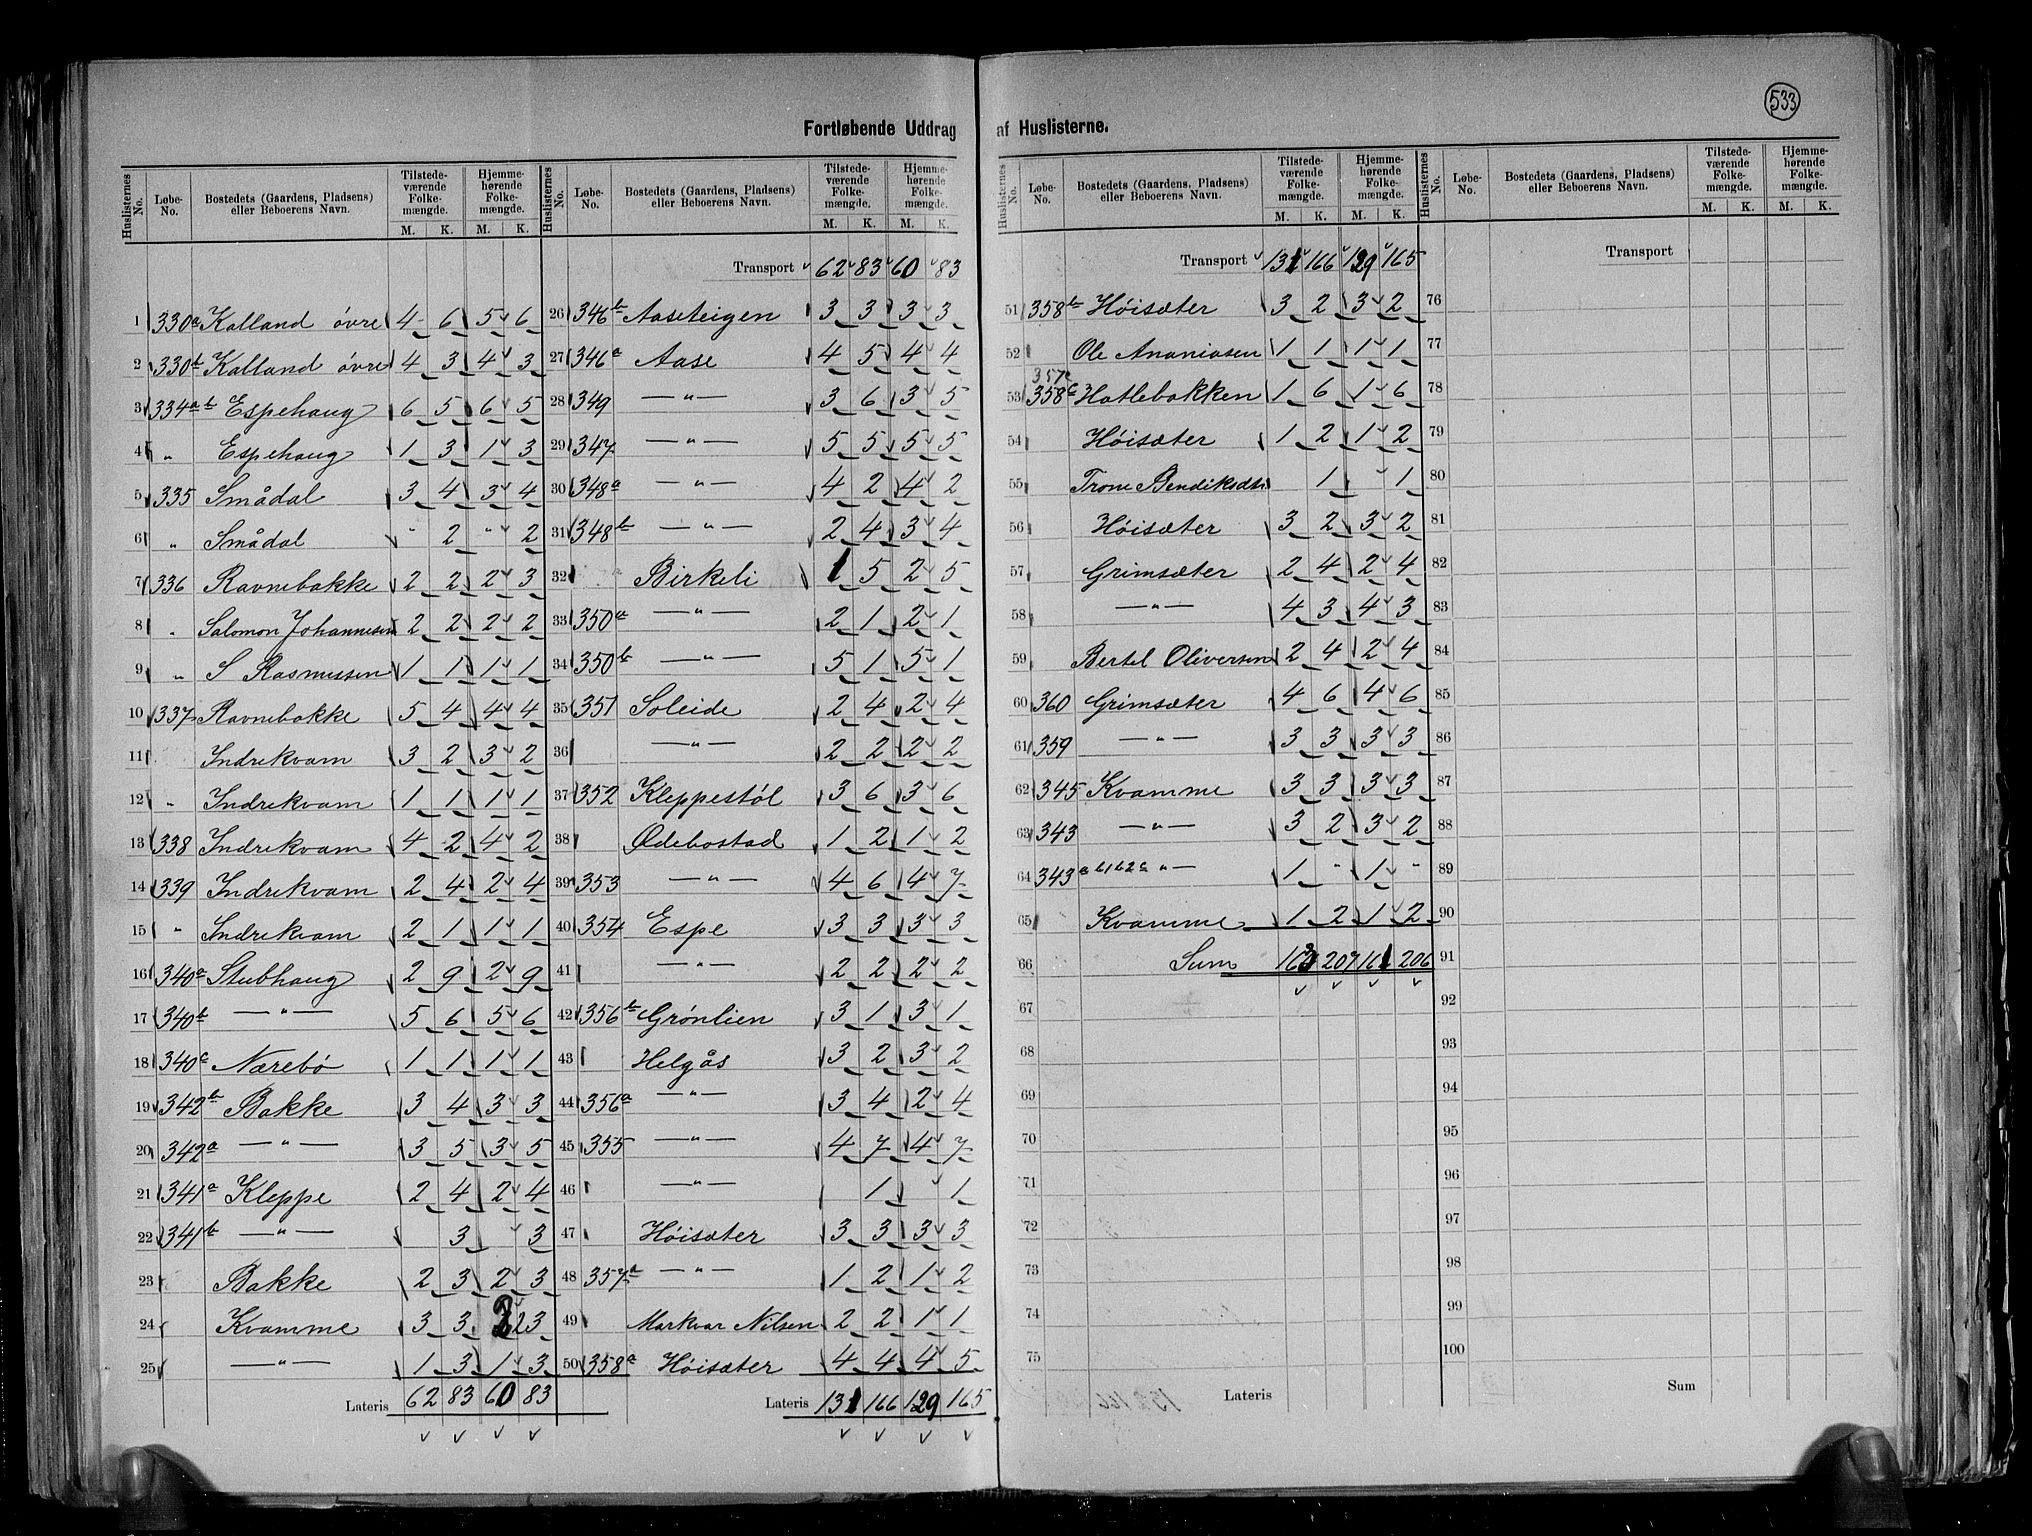 533
Fortløbende Uddrag af Huslisterne.
Huslisternes No. Løbe-No. Bostedets (Gaardens, Pladsens) eller Beboerens Navn. Tilstedeværende Folkemængde. M. K. Hjemmehørende Folkemængde. M. K.
1 330a Kalland øvre 4 6 5 6
2 330b Kalland øvre 4 3 4 3
3 334ab Espehaug 6 5 6 5
4 " Espehaug 1 3 1 3
5 335 Smådal 3 4 3 4
6 " Smådal " 2 " 2
7 336 Ravnebakke 2 2 2 3
8 " Salomon Johannesen 2 2 2 2
9 " S Rasmussen 1 1 1 1
10 337 Ravnebakke 5 4 4 4
11 Indrekvam 3 2 3 2
12 " Indrekvam 1 1 1 1
13 338 Indrekvam 4 2 4 2
14 339 Indrekvam 2 4 2 4
15 " Indrekvam 2 1 1 1
16 340a Stubhaug 2 9 2 9
17 340b — " — 5 6 5 6
18 340c Nærebø 1 1 1 1
19 342b Bakke 3 4 3 3
20 342a — " — 3 5 3 5
21 341a Kleppe 2 4 2 4
22 341b — " — 3 3
23 Bakke 2 3 2 3
24 Kvamme 3 3 2 3
25 — " — 1 3 1 3
Lateris 62 83 60 83
Huslisternes No. Løbe-No. Bostedets (Gaardens, Pladsens) eller Beboerens Navn. Tilstedeværende Folkemængde. M. K. Hjemmehørende Folkemængde. M. K.
Transport 62 83 60 83
26 346b Aaseteigen 3 3 3 3
27 346a Aase 4 5 4 4
28 349 — " — 3 6 3 5
29 347 — " — 5 5 5 5
30 348a — " — 4 2 4 2
31 348b — " — 2 4 3 4
32 Birkeli 1 5 2 5
33 350a — " — 2 1 2 1
34 350b — " — 5 1 5 1
35 351 Soleide 2 4 2 4
36 — " — 2 2 2 2
37 352 Kleppestøl 3 6 3 6
38 Ødebostad 1 2 1 2
39 353 — " — 4 6 4 7
40 354 Espe 3 3 3 3
41 — " — 2 2 2 2
42 356b Grønlien 3 1 3 1
43 Helgås 3 2 3 2
44 356a — " — 3 4 2 4
45 355 — " — 4 7 4 7
46 — " — 1 1
47 Høisæter 3 3 3 3
48 357a — " — 1 2 1 2
49 Markvar Nilsen 2 2 1 1
50 358a Høisæter 4 4 4 5
Lateris 131 166 129 165
Huslisternes No. Løbe-No. Bostedets (Gaardens, Pladsens) eller Beboerens Navn. Tilstedeværende Folkemængde. M. K. Hjemmehørende Folkemængde. M. K.
Transport 131 166 129 165
51 358b Høisæter 3 2 3 2
52 Ole Ananiasen 1 1 1 1
357c
53 358c Hatlebakken 1 6 1 6
54 Høisæter 1 2 1 2
55 Trone Bendiksdt. 1 1
56 Høisæter 3 2 3 2
57 Grimsæter 2 4 2 4
58 — " — 4 3 4 3
59 Bertel Oliversen 2 4 2 4
60 360 Grimsæter 4 6 4 6
61 359 — " — 3 3 3 3
62 345 Kvamme 3 3 3 3
63 343 — " — 3 2 3 2
64 343 a b1 b2 c " — 1 " 1 "
65 Kvamme 1 2 1 2
66 Sum 163 207 161 206
67
68
69
70
71
72
73
74
75
Lateris
Huslisternes No. Løbe-No. Bostedets (Gaardens, Pladsens) eller Beboerens Navn. Tilstedeværende Folkemængde. M. K. Hjemmehørende Folkemængde. M. K.
Transport
76
77
78
79
80
81
82
83
84
85
86
87
88
89
90
91
92
93
94
95
96
97
98
99
100
Sum